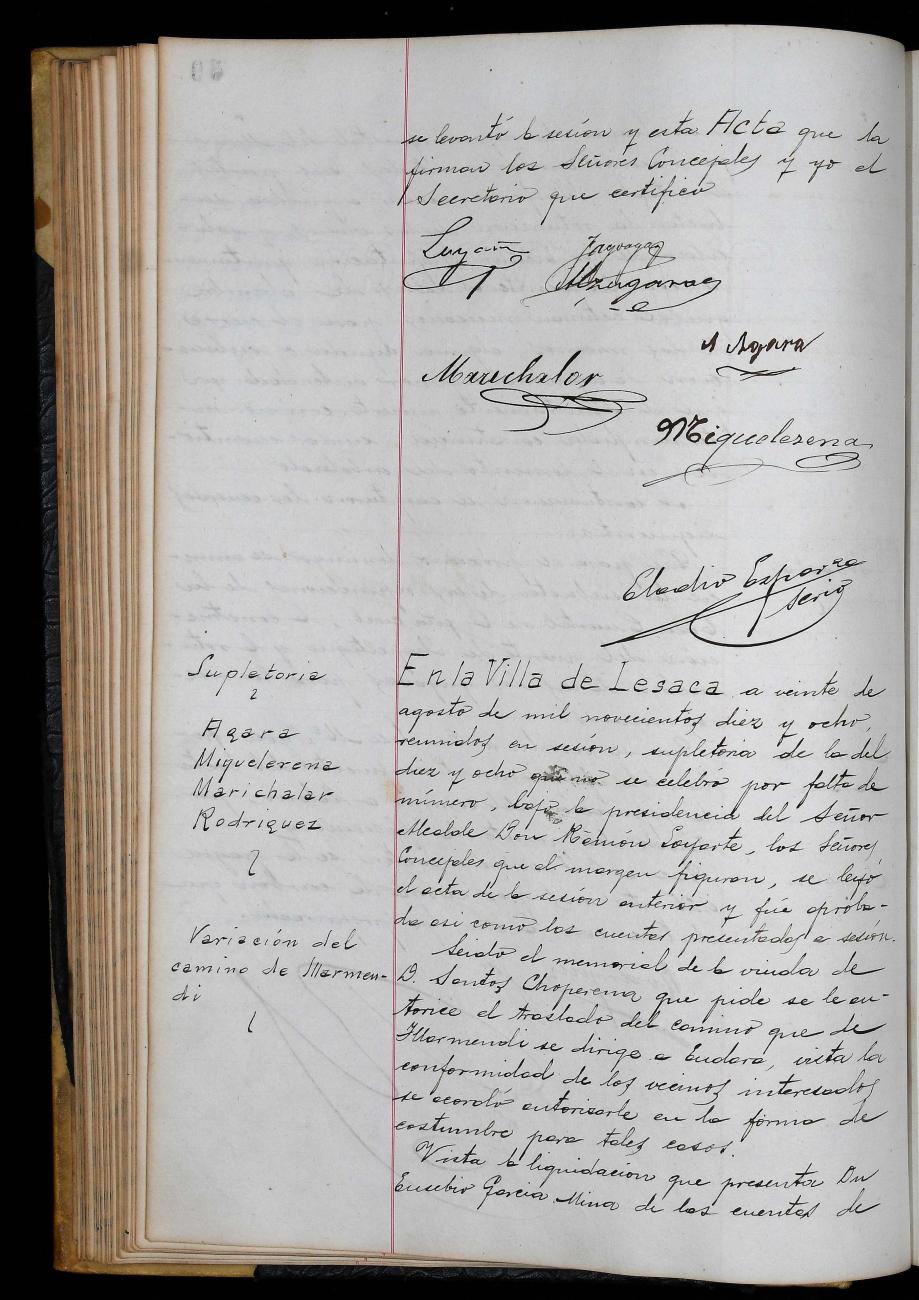 se levantó la sesión y esta Acta que la
firman los Señores Concejales y yo el
Secretario que certifico
Marichalar
A Agara
Miquelerena
Eladio Esparza
Serio
Supletoria
Agara
Miquelerena
Marichalar
Rodriguez
En la Villa de Lesaca a veinte de
agosto de mil novecientos diez y ocho,
reunidos en sesión, supletoria de la del
diez y ocho que no se celebró por falta de
número, bajo la presidencia del Señor
Alcalde Don Ramón Loyarte, los Señores
Concejales que al margen figuran, se leyó
el acta de la sesión anterior y fué aproba-
da asi como las cuentas presentadas a sesión.
Variación del
camino de Illarmen-
di
Leido el memorial de la viuda de
D. Santos Choperena que pide se le au-
torice el traslado del camino que de
Illarmendi se dirige a Endara, vista la
conformidad de los vecinos interesados
se acordó autorisarle en la forma de
costumbre para tales casos.
Vista la liquidacion que presenta Dn
Eusebio Garcia Mina de las cuentas de